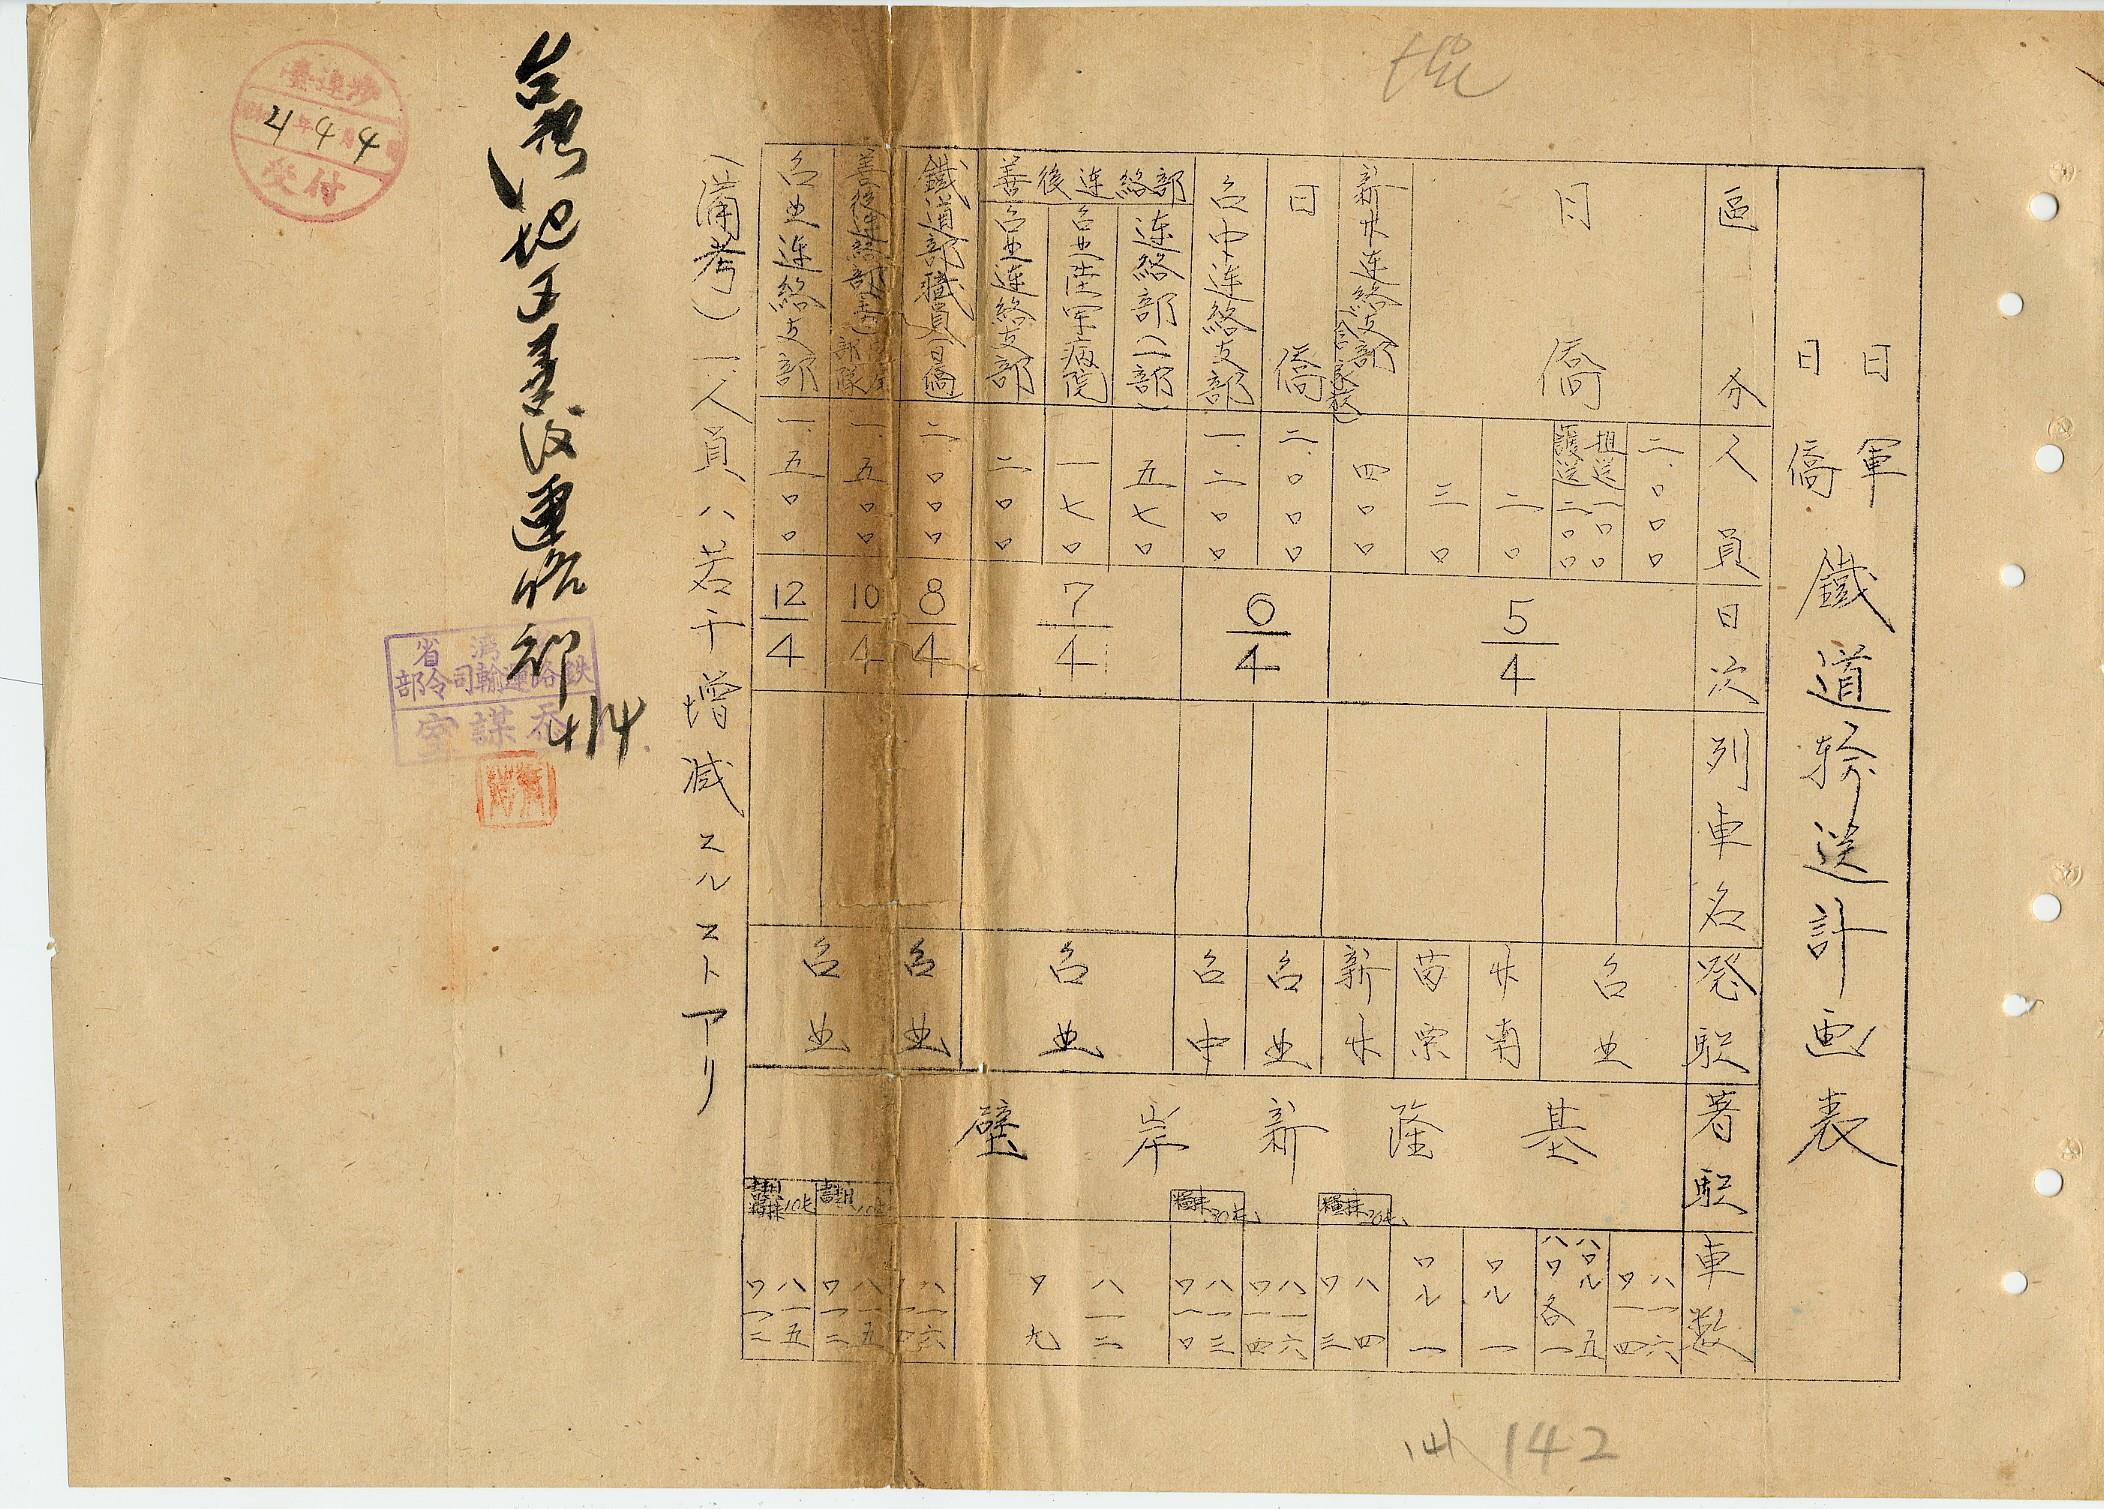 日軍
日僑
鐵道輸送計画表
區分
人員
日次
列車名
発駅
著駅
車数
日僑
二、〇〇〇
担送一〇〇
護送二〇〇
二〇
三〇
5/4
台北
竹南
苗栗
基隆新岸壁
ハ一六
ワ一四
ハロル五
ハワ各一
ワル一
ワル一
新竹連絡支部(含家族)
四〇〇
新竹
糧抹
ハ四
ワ三
日僑
二、〇〇〇
6/4
台北
ハ一六
ワ一四
台中連絡支部
一、二〇〇
台中
糧抹
ハ一三
ワ一〇
善後連絡部
連絡部(二部)
五七〇
台北陸軍病院
一七〇
台北連絡支部
二〇〇
7/4
台北
ハ一二
ワ九
鐵道部職員(日僑)
二、〇〇〇
8/4
台北
ハ一六
善後連絡部
部隊
一、五〇〇
10/4
ハ一五
ワ一二
台北連絡支部
一、五〇〇
12/4
台北
ハ一五
ワ一二
(備考)一、人員ハ若干増減スルコトアリ
台湾地区善後連絡部
4/4
鉄路運輸司令部
参謀室
21 4 4
受付
142